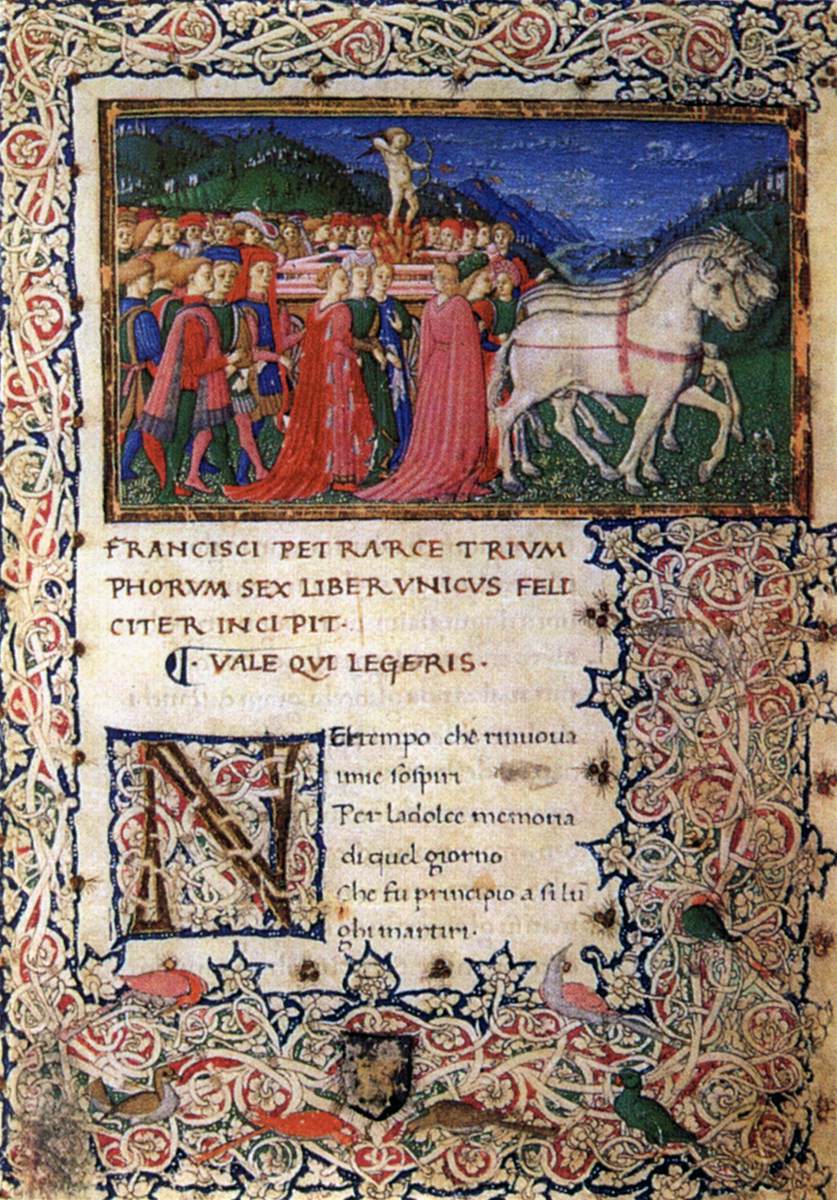 FRANCISCI PETRARCE TRIVM
PHORVM SEX LIBER VNICVS FELI
CITER INCIPIT·
VALE QVI LEGERIS·
NEl tempo che rinuoua
imie sospiri
Per ladolce memoria
di quel giorno
Che fu principio a si lū
ghi martiri·